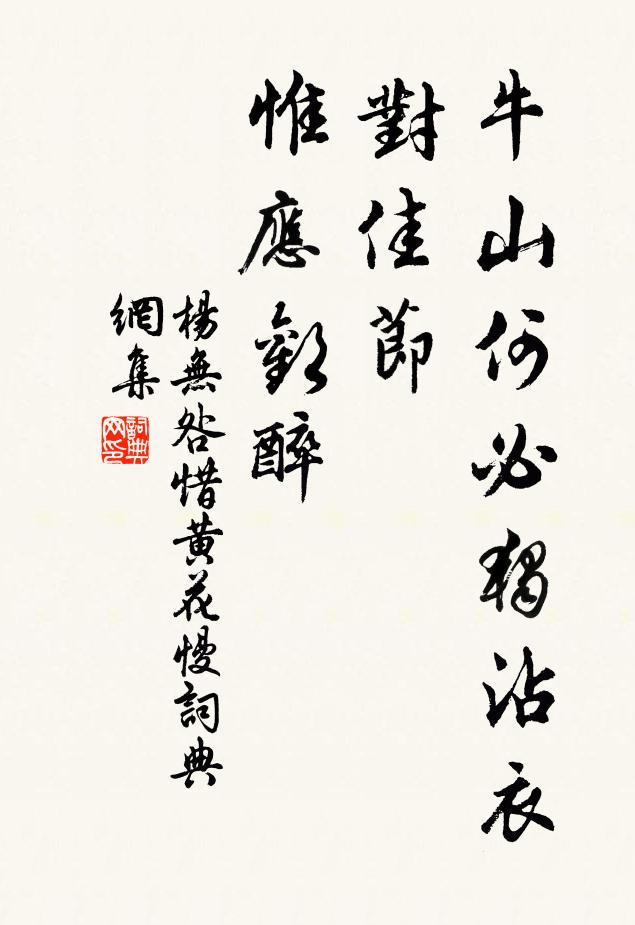 牛山何必獨沾衣
對佳節
惟應歡醉
楊無咎惜黄花慢詞典
網集
詞典
网印